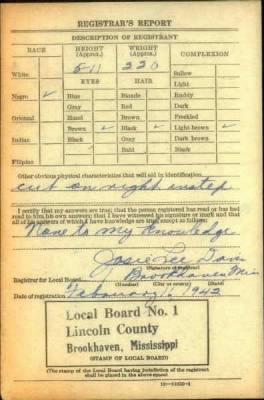 REGISTRAR'S REPORT
DESCRIPTION OF REGISTRANT
RACE HEIGHT (Approx.) WEIGHT (Approx.) COMPLEXION
5-11 220
White Sallow
EYES HAIR Light
Negro ✓ Blue Blonde Ruddy
Gray Red Dark
Oriental Hazel Brown Freckled
Brown ✓ Black ✓ Light brown ✓
Indian Black Gray Dark brown
Bald Black
Filipino
Other obvious physical characteristics that will aid in identification
cut on right instep
I certify that my answers are true; that the person registered has read or has had
read to him his own answers; that I have witnessed his signature or mark and that
all of his answers of which I have knowledge are true, except as follows:
None to my knowledge
Josie Lee
(Signature of registrar)
Registrar for Local Board 1 Brookhaven Miss
(Number) (City or county)
Date of registration February 16 1942
Local Board No. 1
Lincoln County
Brookhaven, Mississippi
(STAMP OF LOCAL BOARD)
(The stamp of the Local Board having jurisdiction of the registrant
shall be placed in the above space.)